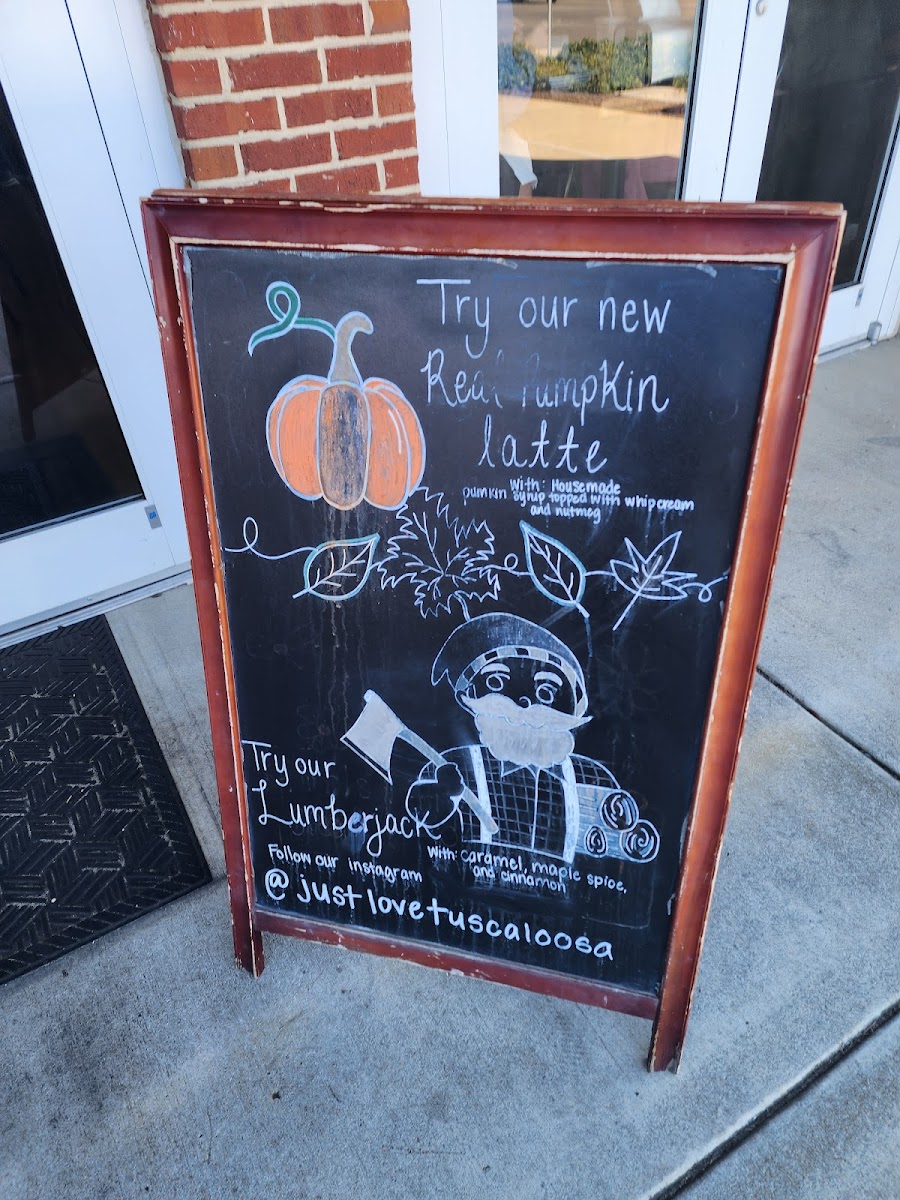 Try our new
Real Pumpkin
latte
With: Housemade
pumkin syrup topped with whipcream
and nutmeg
Try our
Lumberjack
With: Caramel, maple spice,
and cinnamon
Follow our instagram
@justlovetuscaloosa